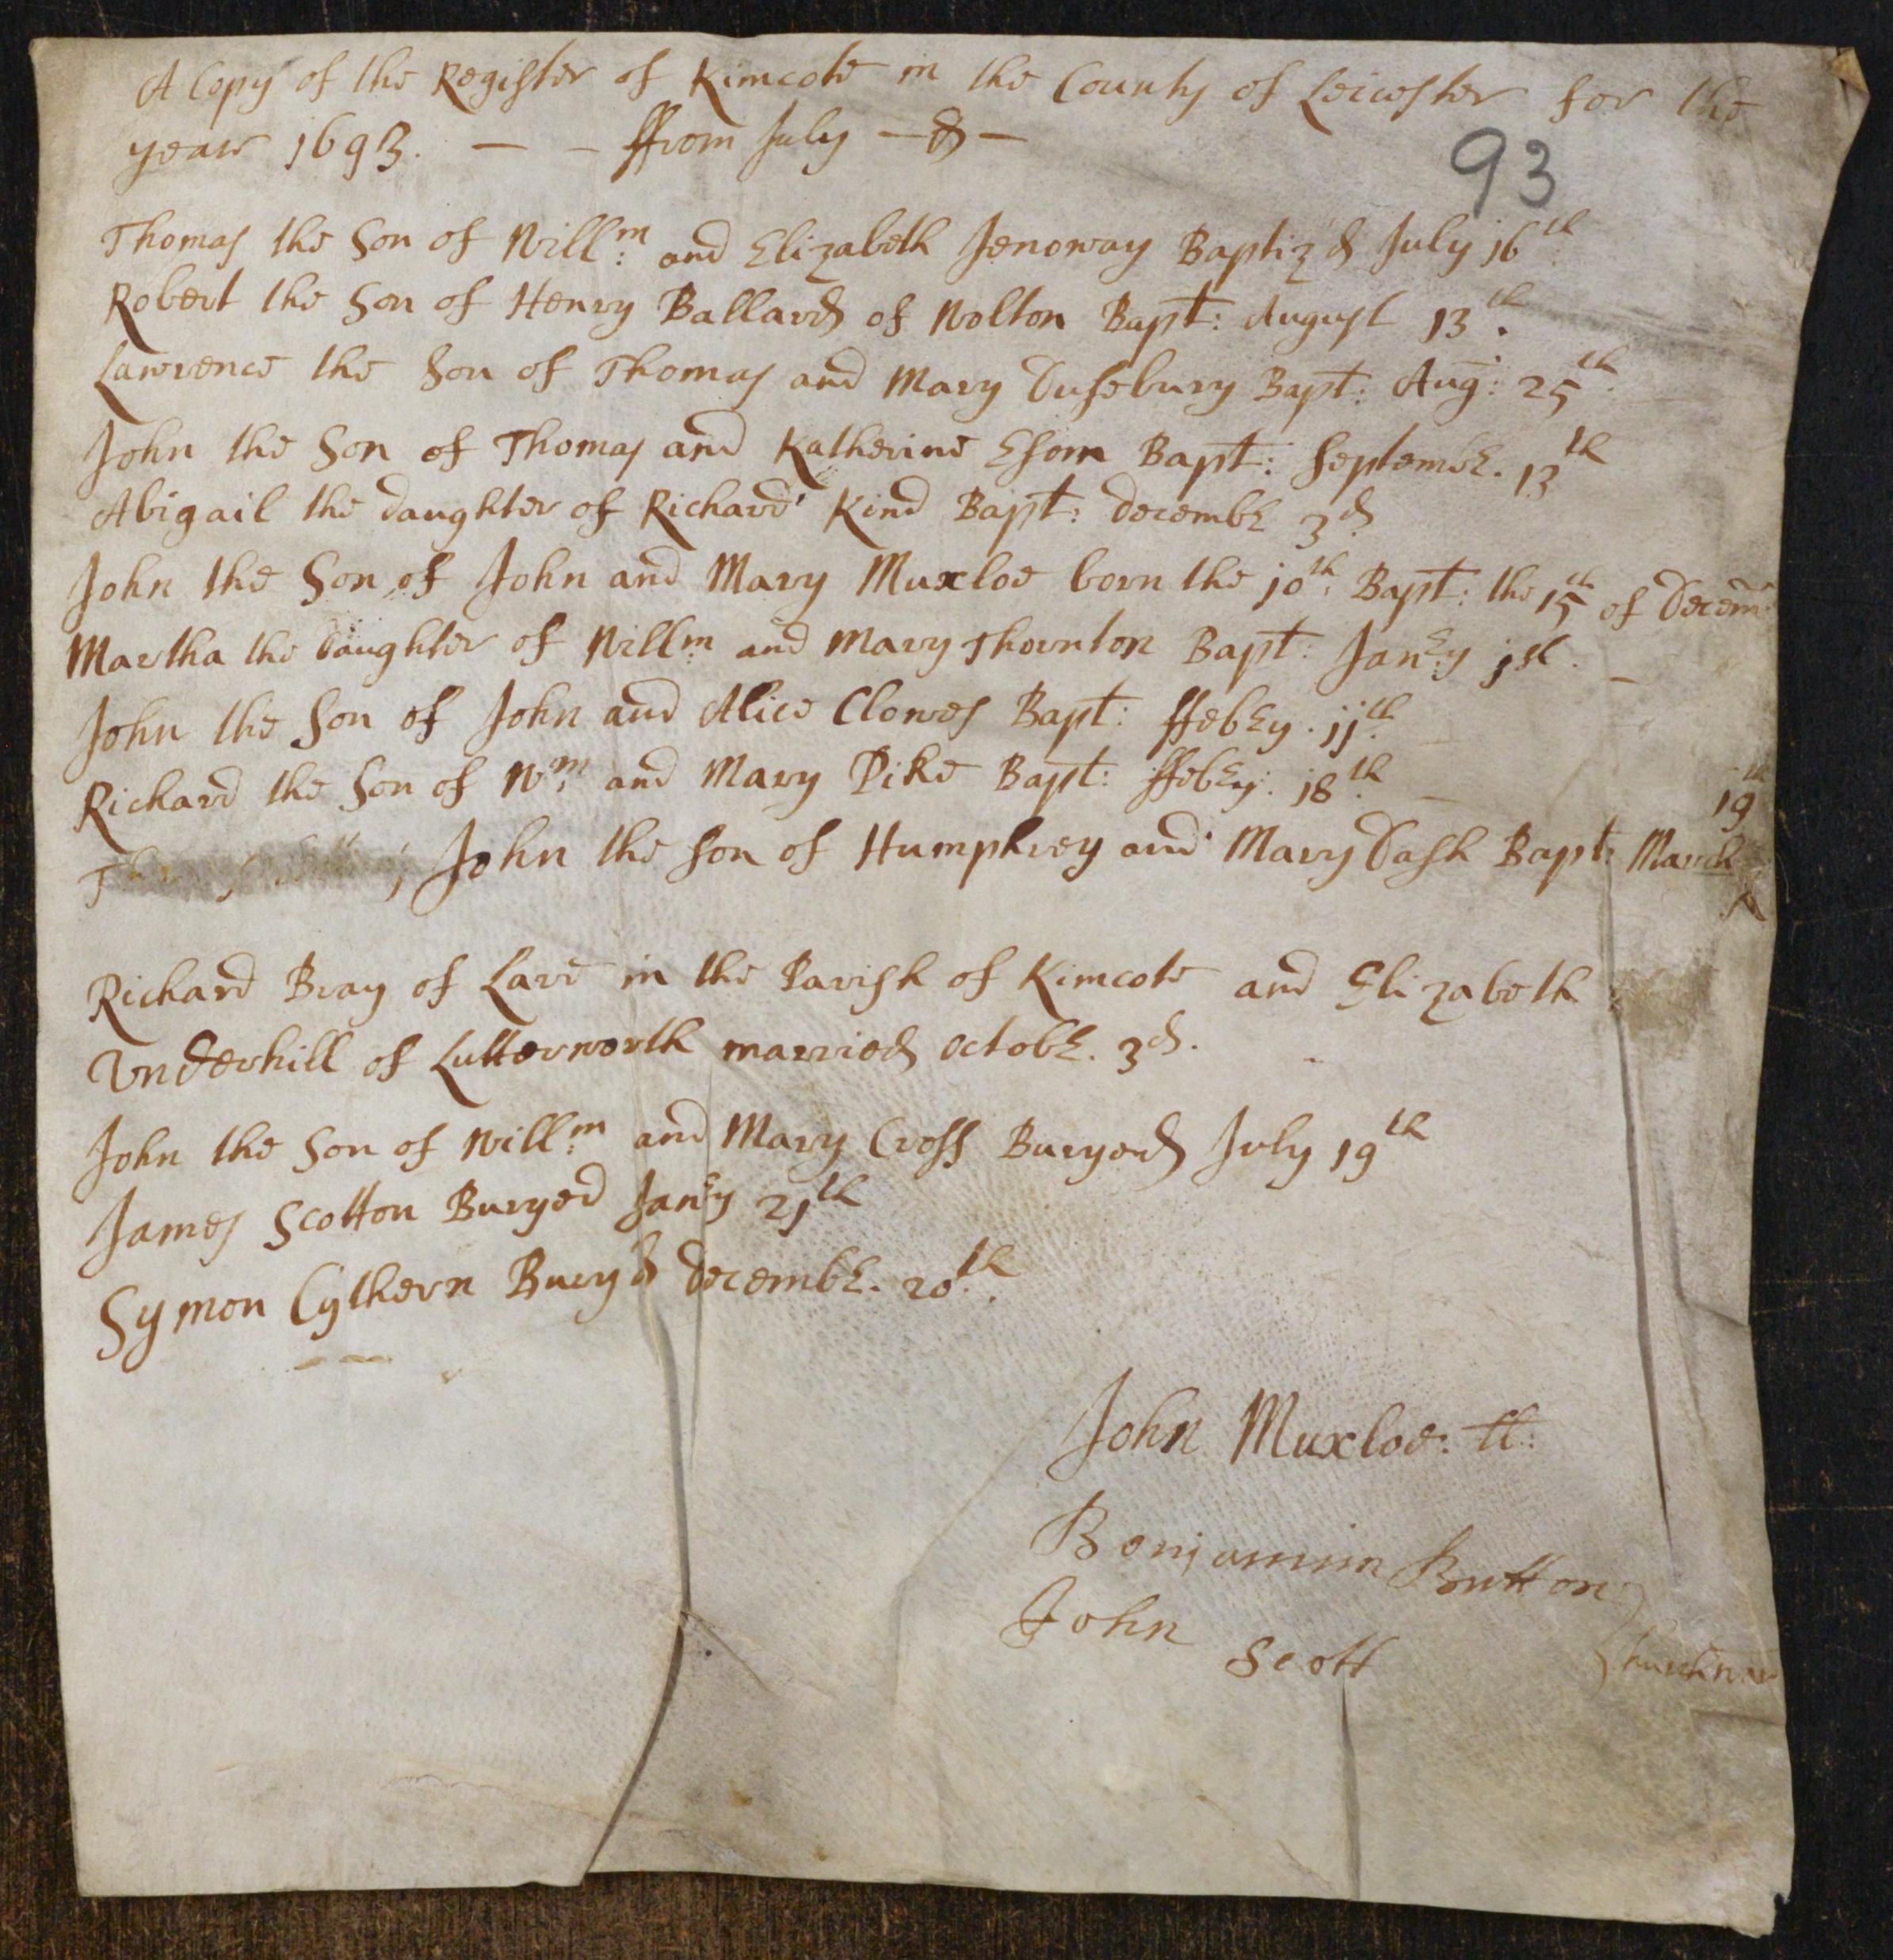 A Copy of the Register of Kimcote in the County of Leicester for the
year 1693. — — ffrom July — & —
93
Thomas the Son of Will:m and Elizabeth Jenoway Baptiz'd July 16th
Robert the Son of Henry Ballard of Wolton Bapt: August 13th.
Lawrence the Son of Thomas and Mary Dusebury Bapt: Aug: 25th.
John the Son of Thomas and Katherine Esom Bapt: Septembr. 13th
Abigail the daughter of Richard Kind Bapt: decembr 3d.
John the Son of John and Mary Muxloe born the 10th. Bapt: the 15th of Decem:
Martha the daughter of Will:m and Mary Thornton Bapt: Janry 1st. —
John the Son of John and Alice Clowes Bapt: ffebry. 11th.
Richard the Son of Wm. and Mary Pike Bapt: ffebry: 18th.
John the son of Humphrey and Mary Dash Bapt: March 19th
Richard Bray of Lare in the Parish of Kimcote and Elizabeth
Underhill of Lutterworth married octobr. 3d.
John the Son of Will:m and Mary Cross Buryed July 19th
James Scotton Buryed Janry 21th
Symon Cythern Bury'd decembr. 20th.
John Muxloe: Cl:
Benjamin Button
John Scott
Churchwar